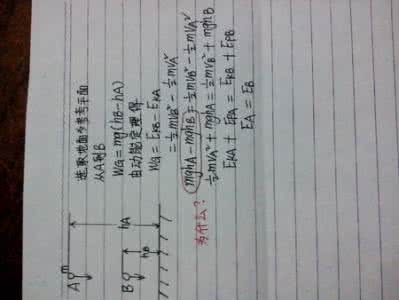 A m
hA
B
hB
选取地面为参考平面
从A到B
WG = mg(hB-hA)
由动能定理得
WG = EKB - EKA
= ½mVB² - ½mVA²
mghA - mghB = ½mVB² - ½mVA²
½mVA² + mghA = ½mVB² + mghB
EKA + EPA = EKB + EPB
EA = EB
为什么?